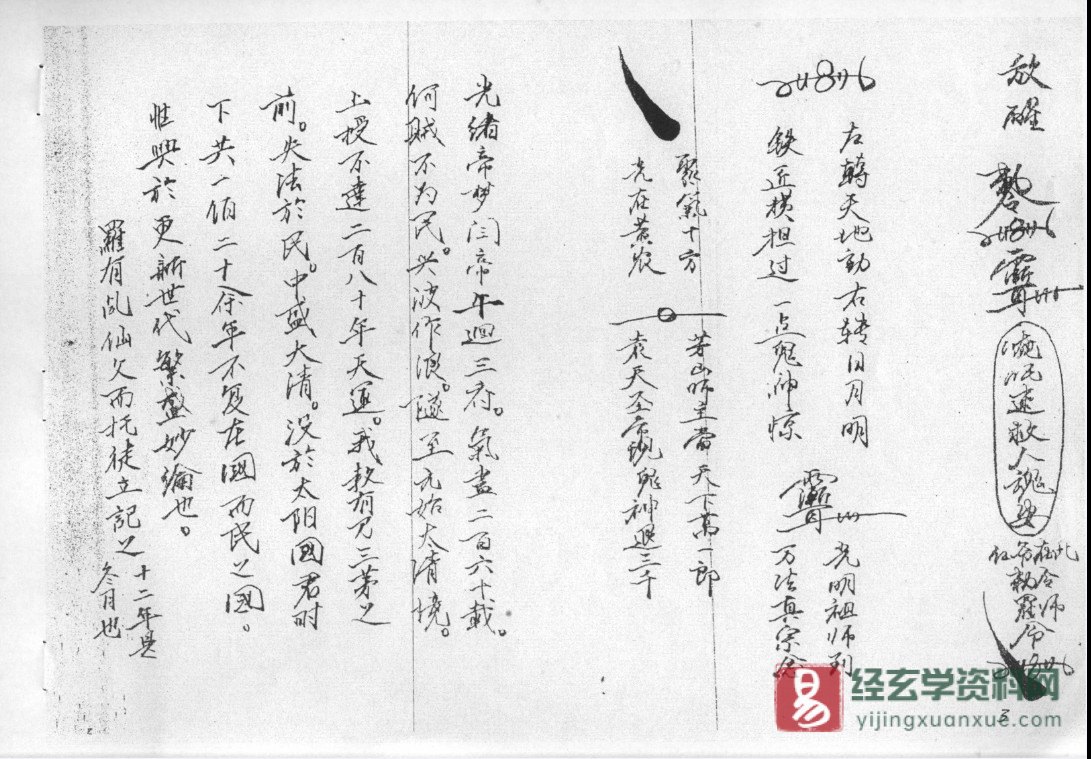 放醒
敕
速救人魂
在此
令师
敕罗令
左轉天地動右转日月明
铁匠横担过一点鬼神惊
光明祖师到
万法真宗
聚氣十方
光在黄
茅山师主當天下萬一郎
袁天圣帝现鬼神退三千
光绪帝梦闫帝午迴三府。氣盡二百六十載。
何贼不为民。兴波作浪。隧至元始太清境。
上授不達二百八十年天運。我教有兄三茅之
前。失法於民。中盛大清。没於太阳國君时
下共一佰二十余年不复在國而民之國。
惟興於更新世代繁盛妙綸也。
羅有乩仙父而托徒立記之
十二年是
冬月也
3
2
经玄学资料网
yijingxuanxue.com
易